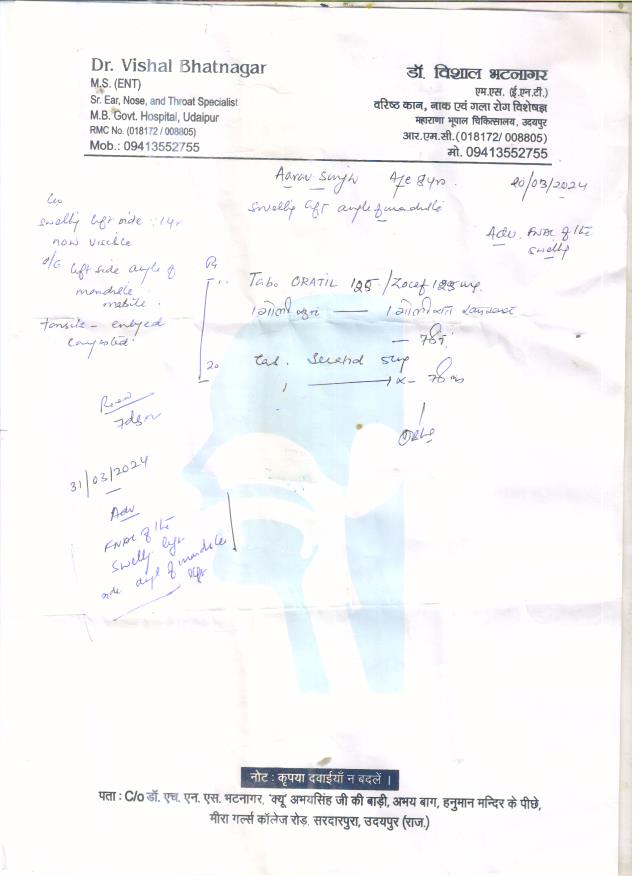 Dr. Vishal Bhatnagar
M.S. (ENT)
Sr. Ear, Nose, and Throat Specialist
M.B. Govt. Hospital, Udaipur
RMC No. (018172 / 008805)
Mob.: 09413552755
डॉ. विशाल भटनागर
एम.एस. (ई.एन.टी.)
वरिष्ठ कान, नाक एवं गला रोग विशेषज्ञ
महाराणा भूपाल चिकित्सालय, उदयपुर
आर.एम.सी.(018172/ 008805)
मो. 09413552755
Aarav Singh Age 8 yrs. 20/03/2024
swelling left angle of mandible
Adv. FNAC of the
swelling
c/o
swelling left side 1 yr
now visible
o/e left side angle of
mandible
mobile.
tonsils - enlarged
congested.
Rx
Tab. ORATIL 125 / Zocef 125 mg.
1 गोली 1 गोली
20
Tab. 5 mg
1 1 x
Review
7 days
31/03/2024
Adv
FNAC of the
swelling left
side angle of mandible
नोट : कृपया दवाईयाँ न बदलें ।
पता : C/o डॉ. एच. एन. एस. भटनागर, 'क्यू' अभयसिंह जी की बाड़ी, अभय बाग, हनुमान मन्दिर के पीछे,
मीरा गर्ल्स कॉलेज रोड़, सरदारपुरा, उदयपुर (राज.)